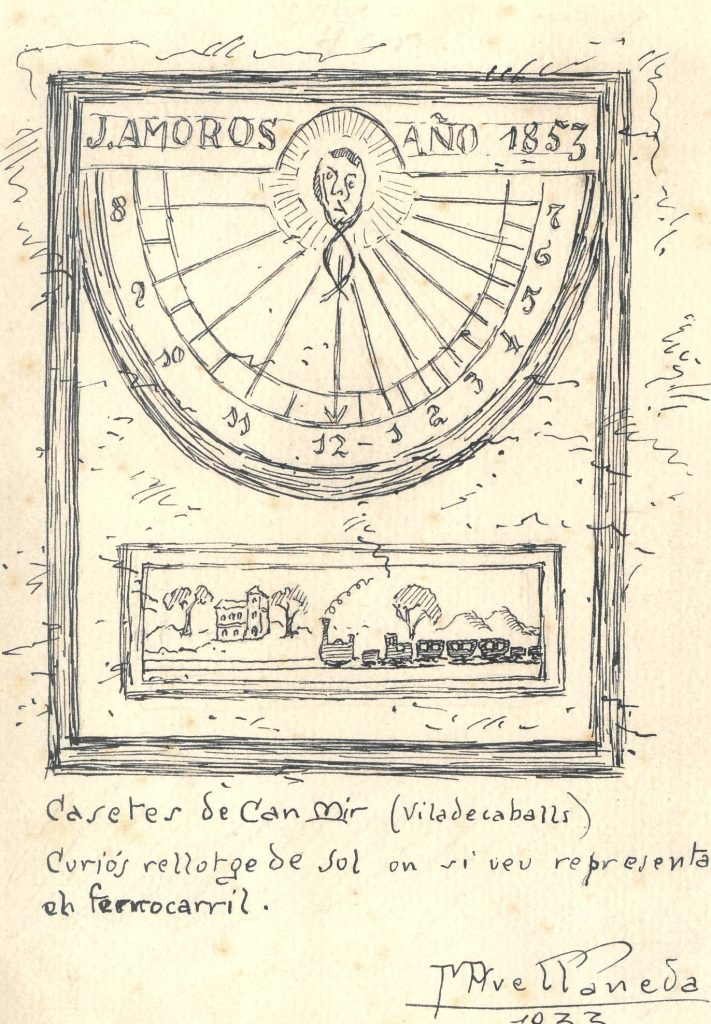 J. AMOROS AÑO 1853
8 7
9 6
10 5
11 4
12 - 1 2 3
Casetes de Can Mir (Viladecaballs)
Curiós rellotge de sol on s'i veu representa
el ferrocarril.
Avellaneda
1933